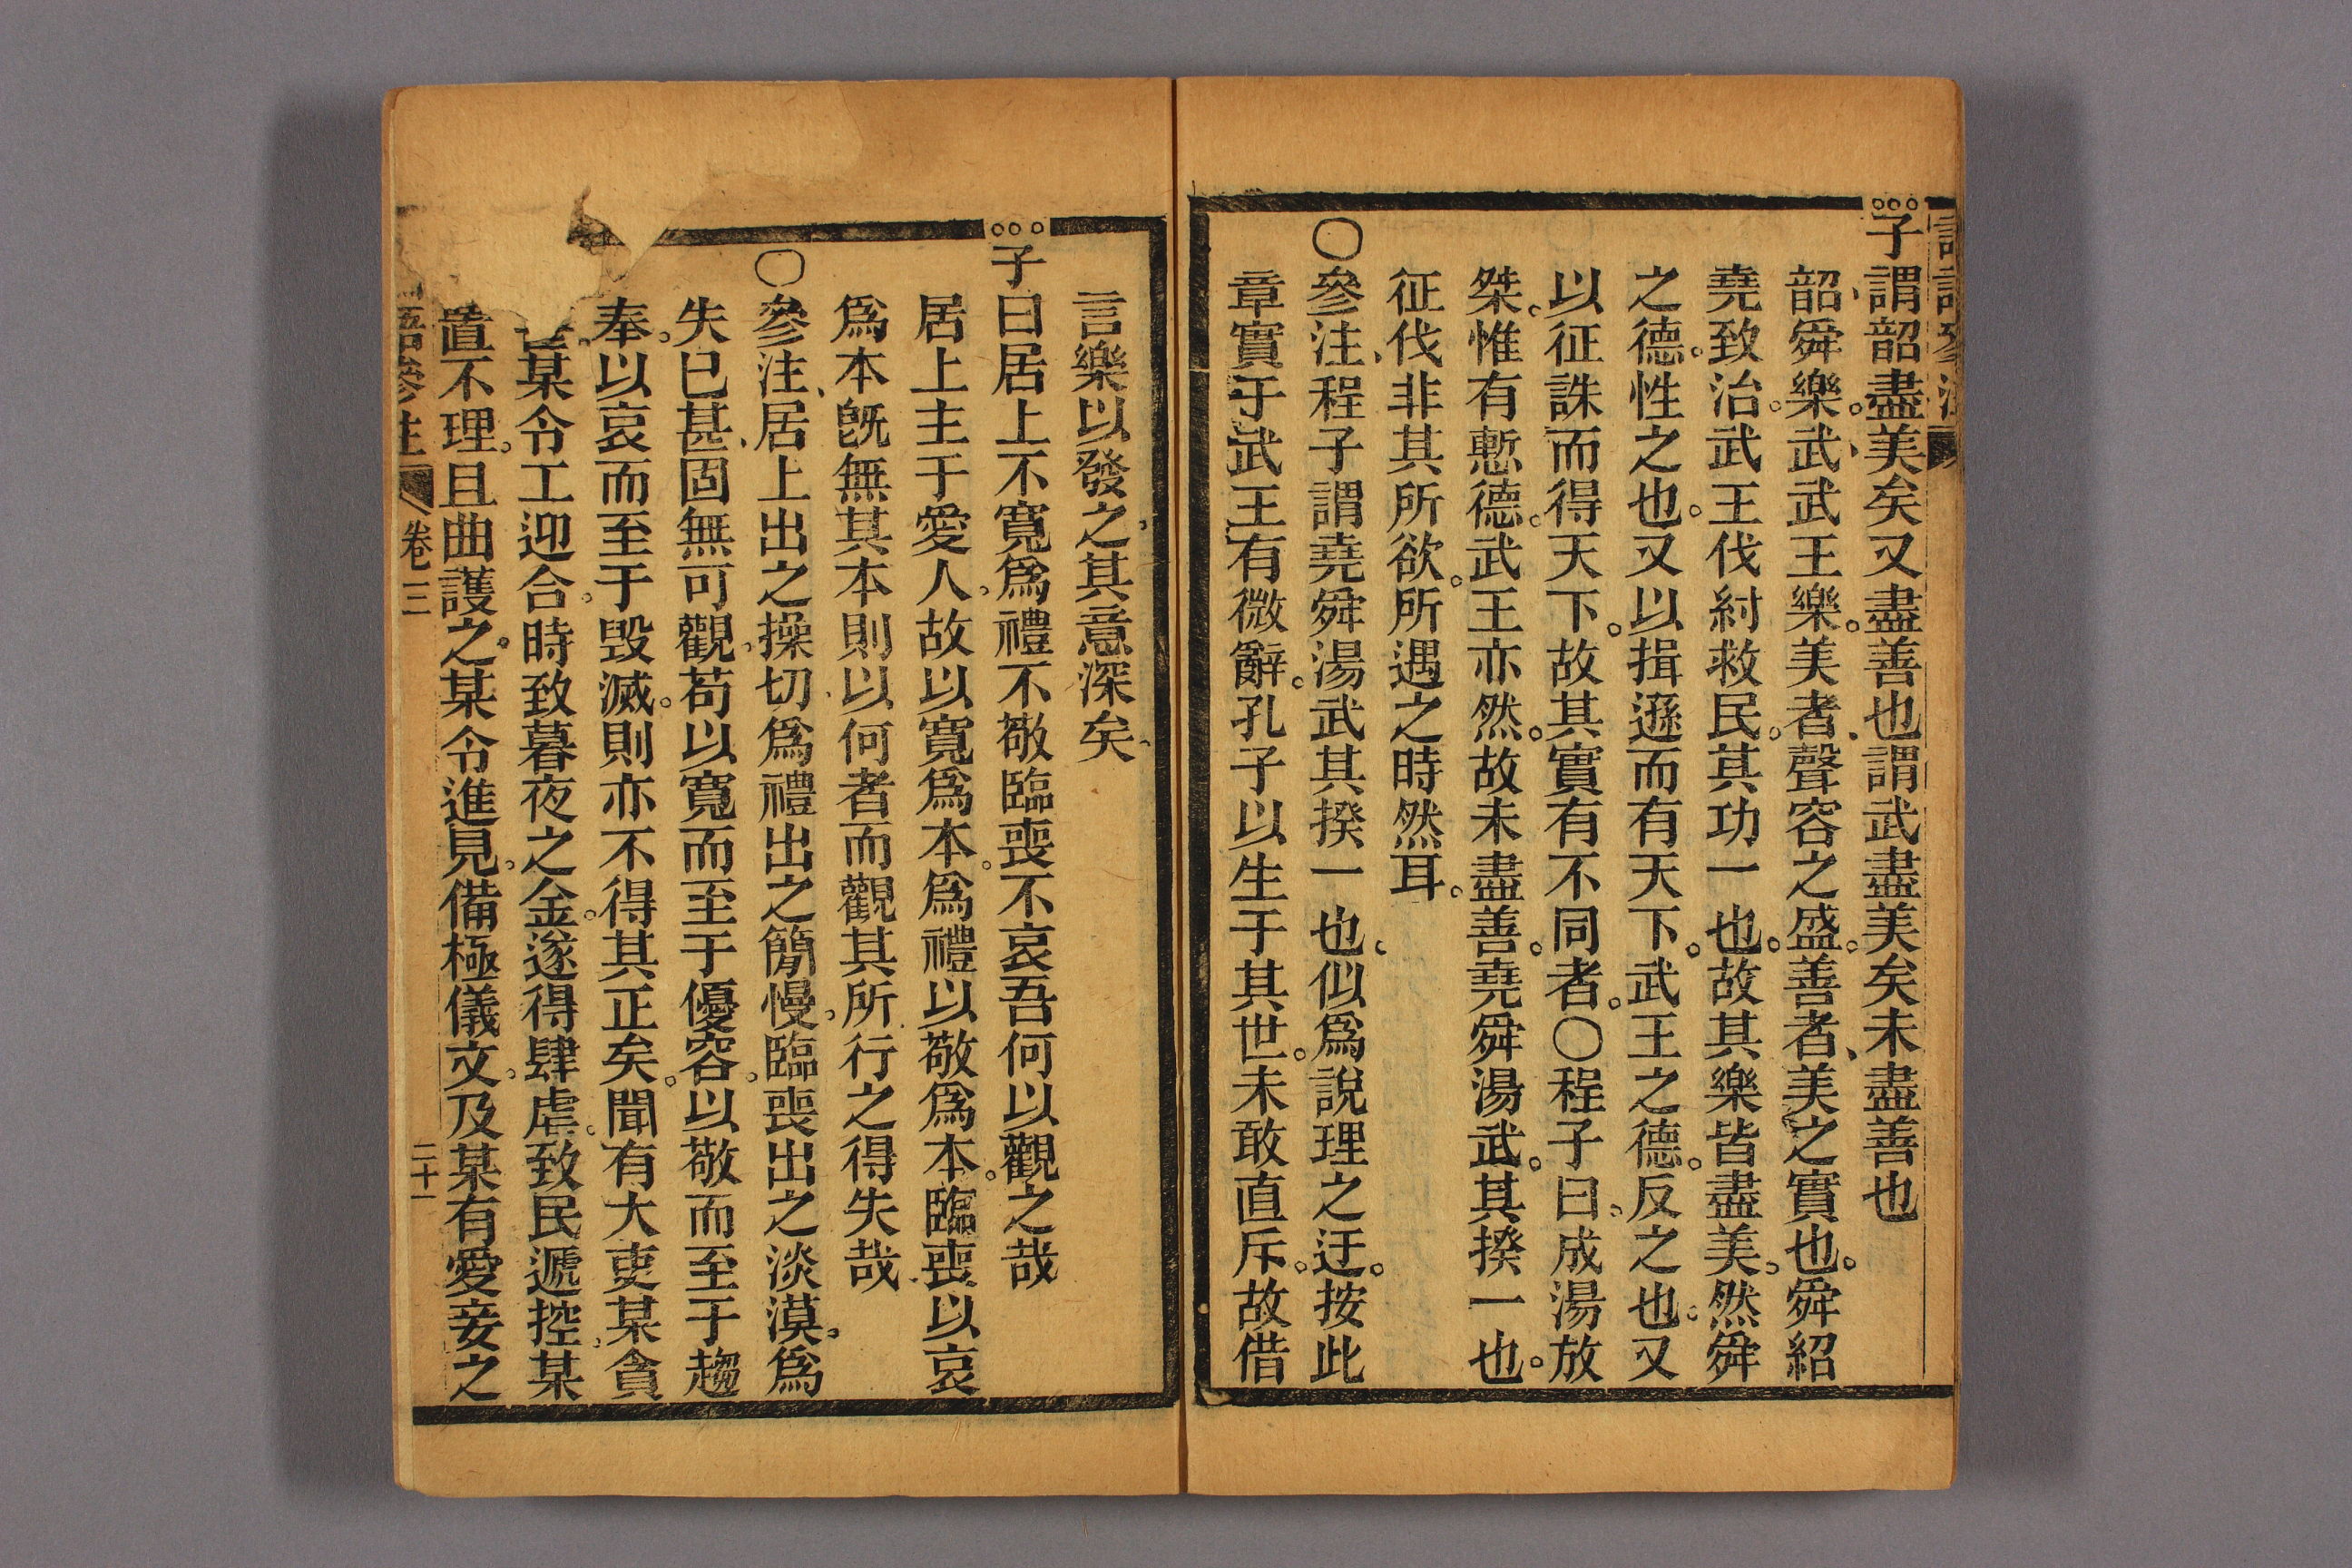 子謂韶盡美矣又盡善也謂武盡美矣未盡善也
韶、舜樂。武、武王樂。美者、聲容之盛。善者、美之實也。舜紹
堯致治。武王伐紂救民。其功一也。故其樂皆盡美。然舜
之德。性之也。又以揖遜而有天下。武王之德。反之也。又
以征誅而得天下。故其實有不同者。〇程子曰。成湯放
桀。惟有慙德。武王亦然。故未盡善。堯舜湯武。其揆一也。
征伐非其所欲。所遇之時然耳。
〇參注、程子謂堯舜湯武其揆一也。似爲說理之迂。按此
章實于武王有微辭。孔子以生于其世。未敢直斥。故借
言樂以發之。其意深矣、
子曰居上不寬爲禮不敬臨喪不哀吾何以觀之哉
居上主于愛人。故以寬爲本。爲禮以敬爲本。臨喪、以哀
爲本旣無其本則以何者而觀其所行之得失哉
〇參注、居上出之操切、爲禮出之簡慢。臨喪出之淡漠。爲
失已甚、固無可觀。苟以寬而至于優容。以敬而至于趨
奉。以哀而至于毀滅。則亦不得其正矣。聞有大吏某貪
某令工迎合。時致暮夜之金。遂得肆虐。致民遞控。某
置不理。且曲護之。某令進見。備極儀文。及某有愛妾之
語參注 卷三 二十一